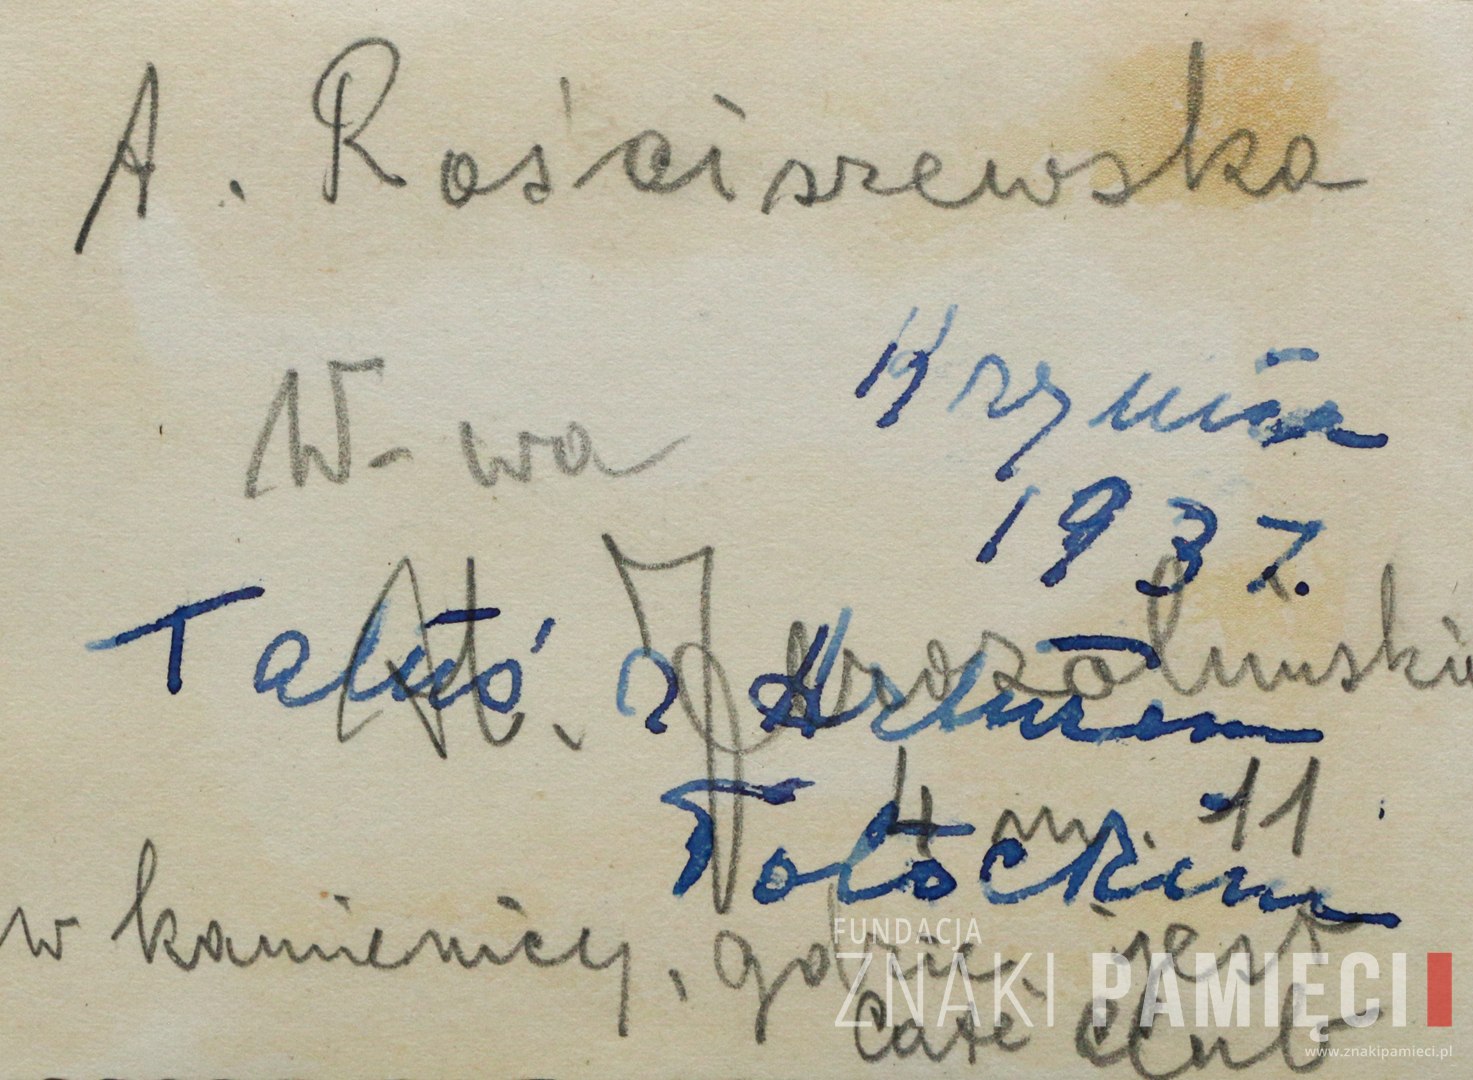 A. Rościszewska
W-wa
Krynica
1937.
Al. Jerozolimskie
Tatuś z Arturem
4 m. 11
Potockim
w kamienicy, gdzie jest
Café Club
FUNDACJA
ZNAKI PAMIĘCI
www.znakipamieci.pl